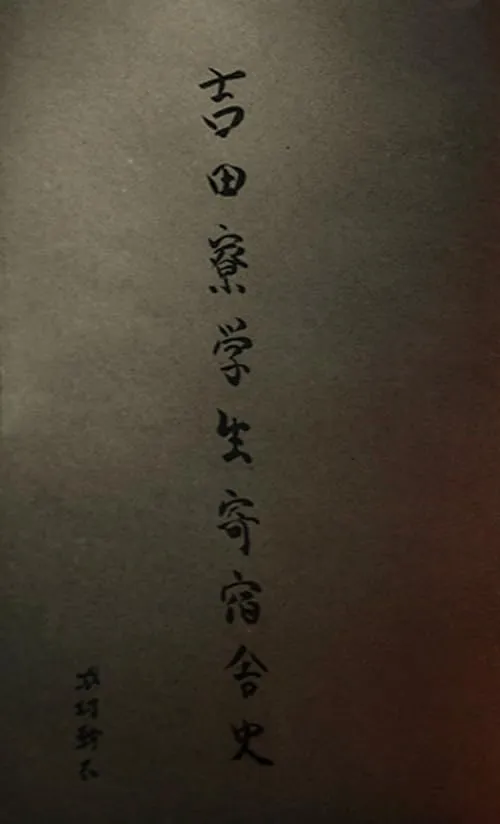 吉田寮学生寄宿舎史